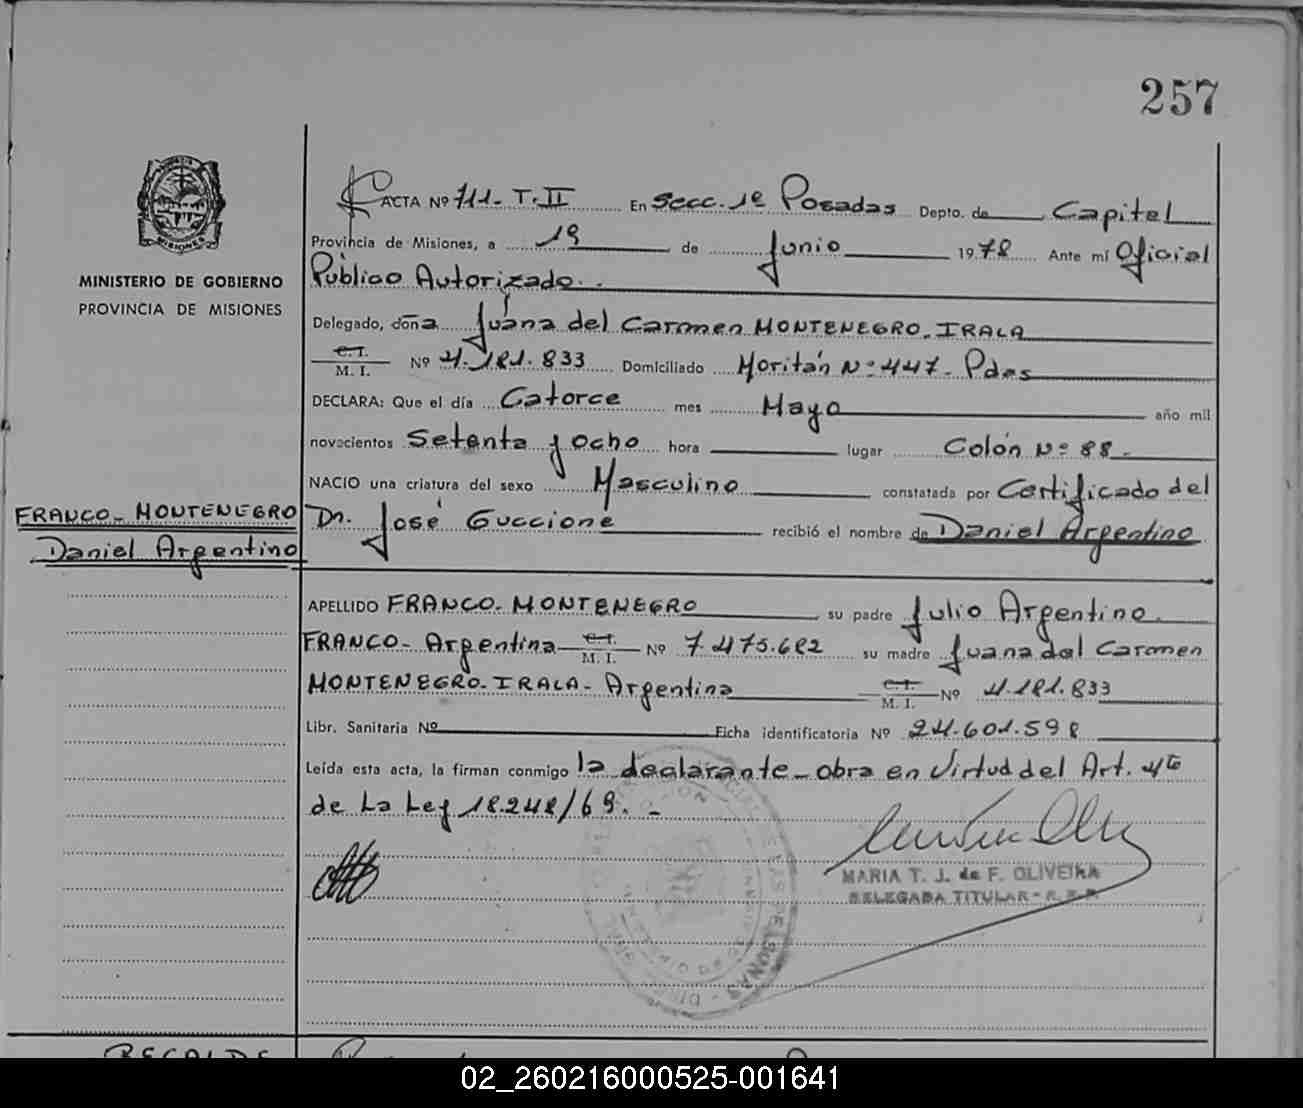 257
MINISTERIO DE GOBIERNO
PROVINCIA DE MISIONES
FRANCO-MONTENEGRO
Daniel Argentino
ACTA Nº 711- T. II En Secc. 1ª Posadas Depto. de Capital
Provincia de Misiones, a 19 de Junio 1978 Ante mí Oficial
Público Autorizado.
Delegado, doña Juana del Carmen MONTENEGRO-IRALA
C.I. M. I. Nº 4.181.833 Domiciliado Moritán Nº 447- Pdas
DECLARA: Que el día Catorce mes Mayo año mil
novecientos Setenta y Ocho hora lugar Colón Nº 88.
NACIO una criatura del sexo Masculino constatada por Certificado del
Dr. José Guccione recibió el nombre de Daniel Argentino
APELLIDO FRANCO-MONTENEGRO su padre Julio Argentino
FRANCO- Argentina C.I. M. I. Nº 7.475.682 su madre Juana del Carmen
MONTENEGRO-IRALA- Argentina C.I. M. I. Nº 4.181.833
Libr. Sanitaria Nº Ficha identificatoria Nº 24.601.598
Leída esta acta, la firman conmigo la declarante- obra en Virtud del Art. 4to
de La Ley 18.248/69.-
MARIA T. J. de F. OLIVEIRA
DELEGADA TITULAR - R.E.P.
RECALDE
02_260216000525-001641